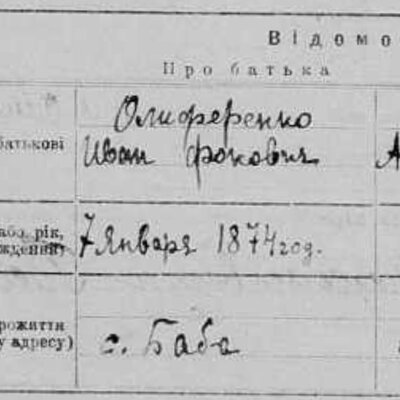 Відомо
Про батька
Олиференко
батькові Иван Фокович А
або рік,
ждения) 7 Января 1874 год.
рожиття
у адресу) с. Баба